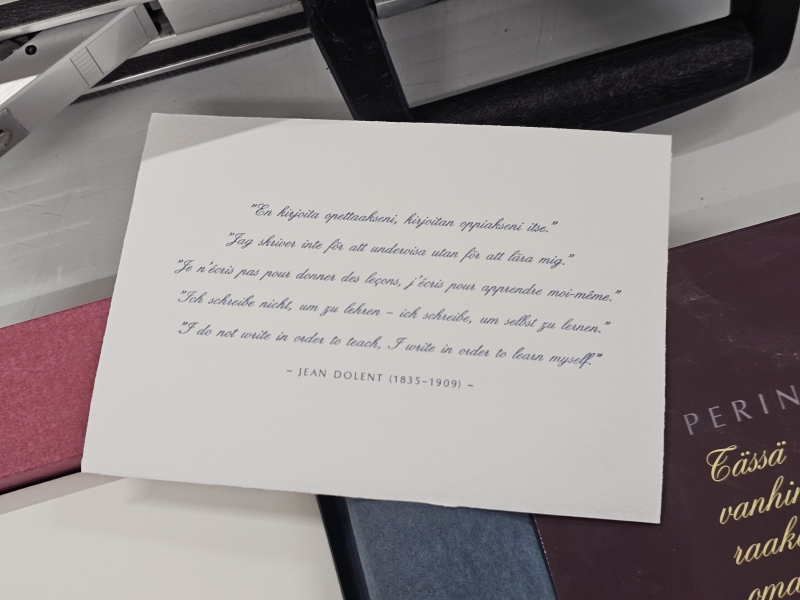 "En kirjoita opettaakseni, kirjoitan oppiakseni itse."
"Jag skriver inte för att undervisa utan för att lära mig."
"Je n'écris pas pour donner des leçons, j'écris pour apprendre moi-même."
"Ich schreibe nicht, um zu lehren – ich schreibe, um selbst zu lernen."
"I do not write in order to teach, I write in order to learn myself."
– JEAN DOLENT (1835–1909) –
Tässä